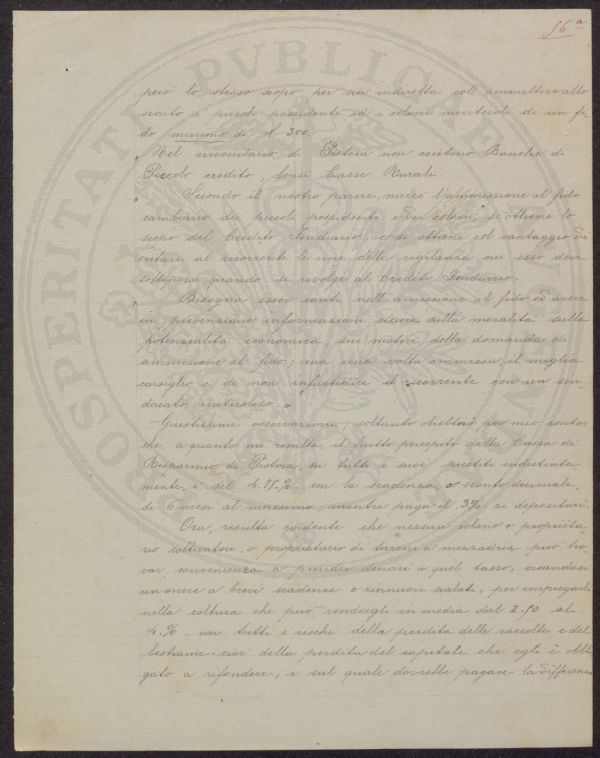 56 a
però lo stesso scopo per via indiretta coll'ammettere allo
sconto i piccoli possidenti ed i coloni meritevoli di un fi-
do minimo di £ 300.
„ Nel circondario di Pistoia non esistono Banche di
Piccolo credito, bensì Casse Rurali.
„ Secondo il nostro parere, mercè l'ammissione al fido
cambiario dei piccoli possidenti e dei coloni, si ottiene lo
scopo del Credito Fondiario, e si ottiene col vantaggio di
evitare al ricorrente le noie della vigilanza cui esso deve
sottoporsi quando si rivolge al Credito Fondiario.
„ Bisogna esser cauti nell'ammissione al fido ed avere
in prevenzione informazioni sicure sulla moralità sulla
potenzialità economica, sui motivi della domanda di
ammissione al fido; ma una volta ammessa, il miglior
consiglio è di non infastidire il ricorrente con un sin-
dacato meticoloso. „
Giustissime osservazioni, soltanto obietterò per mio conto,
che, a quanto mi resulta, il frutto percepito dalla Cassa di
Risparmio di Pistoia, su tutti i suoi prestiti indistinta-
mente, è del % con la scadenza, o sconto
di 6 mesi al massimo, mentre paga il 3% ai depositari.
Ora, resulta evidente che nessun colono o proprieta-
rio coltivatore, o proprietario di terreni a mezzadria può tro-
var convenienza a prender denari a quel tasso, creandosi
un onere a brevi scadenze o rinnuovi scalati, per impiegarli
nella coltura che può rendergli in media dal 2.50 al
4.% con tutti i rischi della perdita delle raccolte e del
bestiame, cioè della perdita del capitale che egli è obbli-
gato a rifondere, e sul quale dovrebbe pagare la differenza
PROSPERITATI PVBLICAE